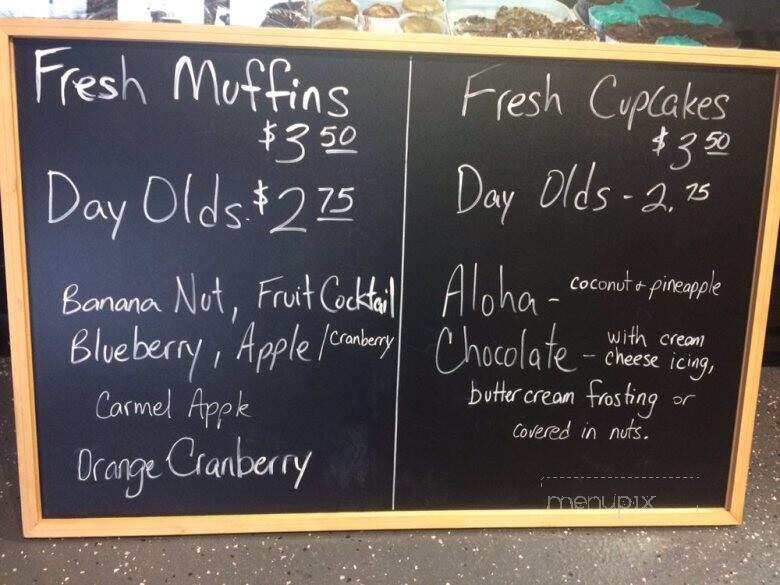 Fresh Muffins
$3 50
Day Olds. $2 75
Banana Nut, Fruit Cocktail
Blueberry, Apple/Cranberry
Carmel Apple
Orange Cranberry
Fresh Cupcakes
$3 50
Day Olds - 2.75
Aloha - coconut & pineapple
Chocolate - with cream
cheese icing,
butter cream frosting or
covered in nuts.
menupix